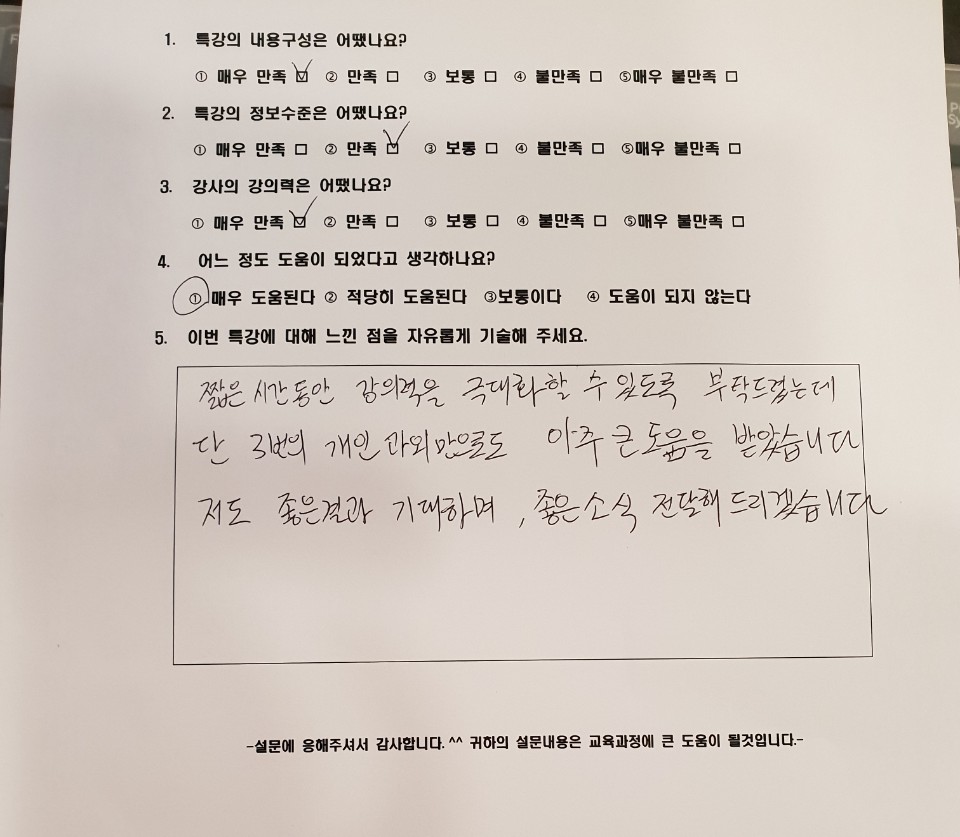 1. 특강의 내용구성은 어땠나요?
① 매우 만족 ☑ ② 만족 □ ③ 보통 □ ④ 불만족 □ ⑤매우 불만족 □
2. 특강의 정보수준은 어땠나요?
① 매우 만족 □ ② 만족 ☑ ③ 보통 □ ④ 불만족 □ ⑤매우 불만족 □
3. 강사의 강의력은 어땠나요?
① 매우 만족 ☑ ② 만족 □ ③ 보통 □ ④ 불만족 □ ⑤매우 불만족 □
4. 어느 정도 도움이 되었다고 생각하나요?
① 매우 도움된다 ② 적당히 도움된다 ③보통이다 ④ 도움이 되지 않는다
5. 이번 특강에 대해 느낀 점을 자유롭게 기술해 주세요.
짧은 시간동안 강의력을 극대화할 수 있도록 부탁드렸는데
단 3번의 개인과외만으로도 아주 큰 도움을 받았습니다
저도 좋은결과 기대하며, 좋은소식 전달해드리겠습니다
-설문에 응해주셔서 감사합니다.^^ 귀하의 설문내용은 교육과정에 큰 도움이 될것입니다.-